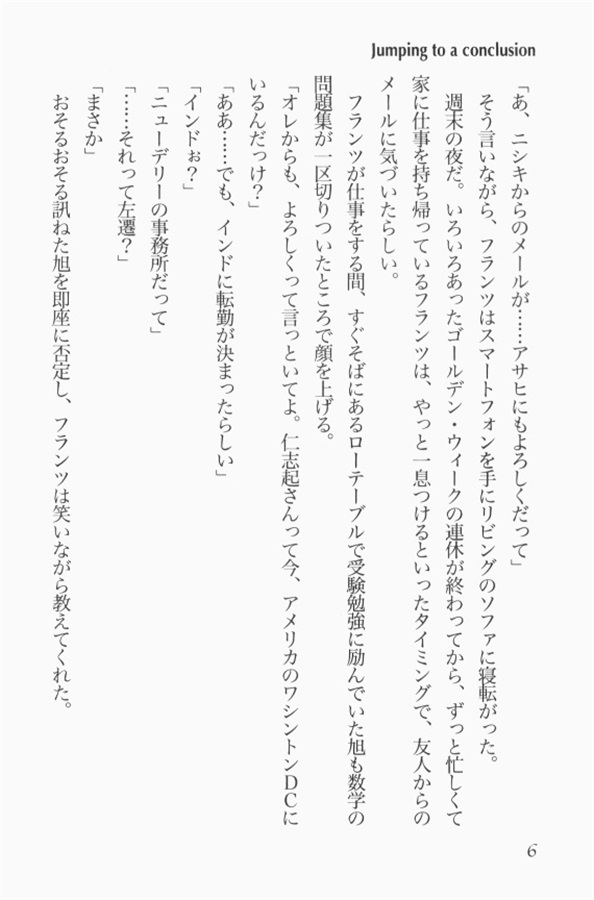 Jumping to a conclusion
「あ、ニシキからのメールが……アサヒにもよろしくだって」
そう言いながら、フランツはスマートフォンを手にリビングのソファに寝転がった。
週末の夜だ。いろいろあったゴールデン・ウィークの連休が終わってから、ずっと忙しくて
家に仕事を持ち帰っているフランツは、やっと一息つけるといったタイミングで、友人からの
メールに気づいたらしい。
フランツが仕事をする間、すぐそばにあるローテーブルで受験勉強に励んでいた旭も数学の
問題集が一区切りついたところで顔を上げる。
「オレからも、よろしくって言っといてよ。仁志起さんって今、アメリカのワシントンDCに
いるんだっけ？」
「ああ……でも、インドに転勤が決まったらしい」
「インドぉ？」
「ニューデリーの事務所だって」
「……それって左遷？」
「まさか」
おそるおそる訊ねた旭を即座に否定し、フランツは笑いながら教えてくれた。
6